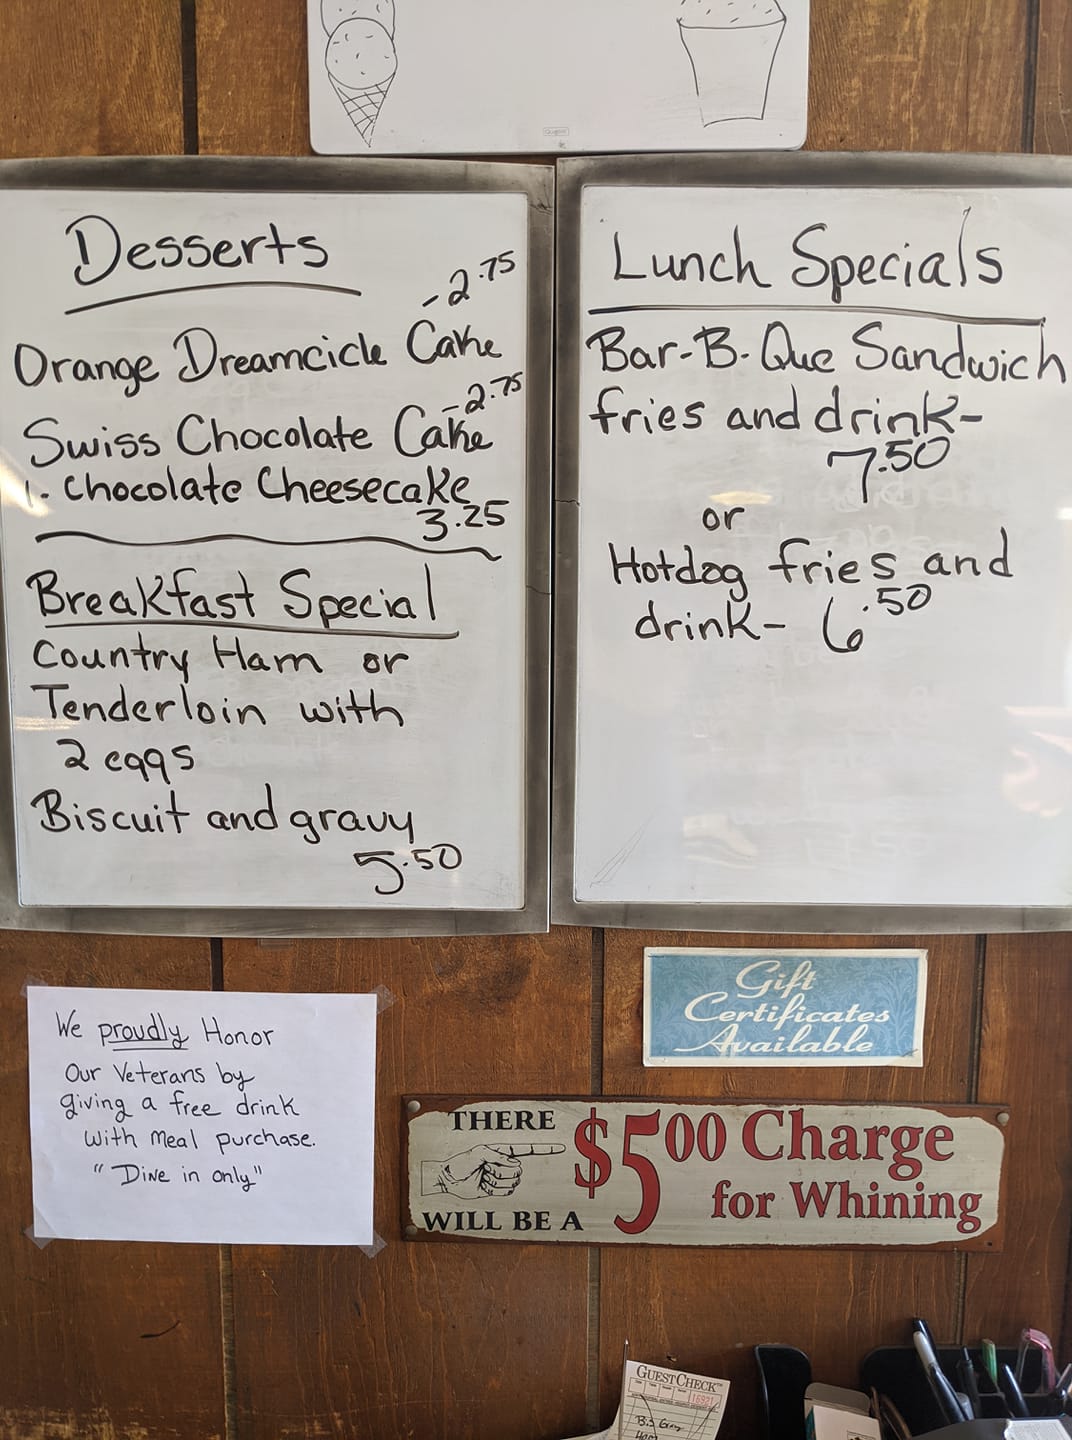 Quartet
Desserts
-2.75
Orange Dreamcicle Cake
-2.75
Swiss Chocolate Cake
1. Chocolate Cheesecake
3.25
Breakfast Special
Country Ham or
Tenderloin with
2 eggs
Biscuit and gravy
5.50
Lunch Specials
Bar-B-Que Sandwich
fries and drink-
7.50
or
Hotdog fries and
drink- 6.50
We proudly Honor
Our Veterans by
giving a free drink
with meal purchase.
"Dine in only"
Gift
Certificates
Available
THERE
WILL BE A
$500 Charge
for Whining
GUESTCHECK